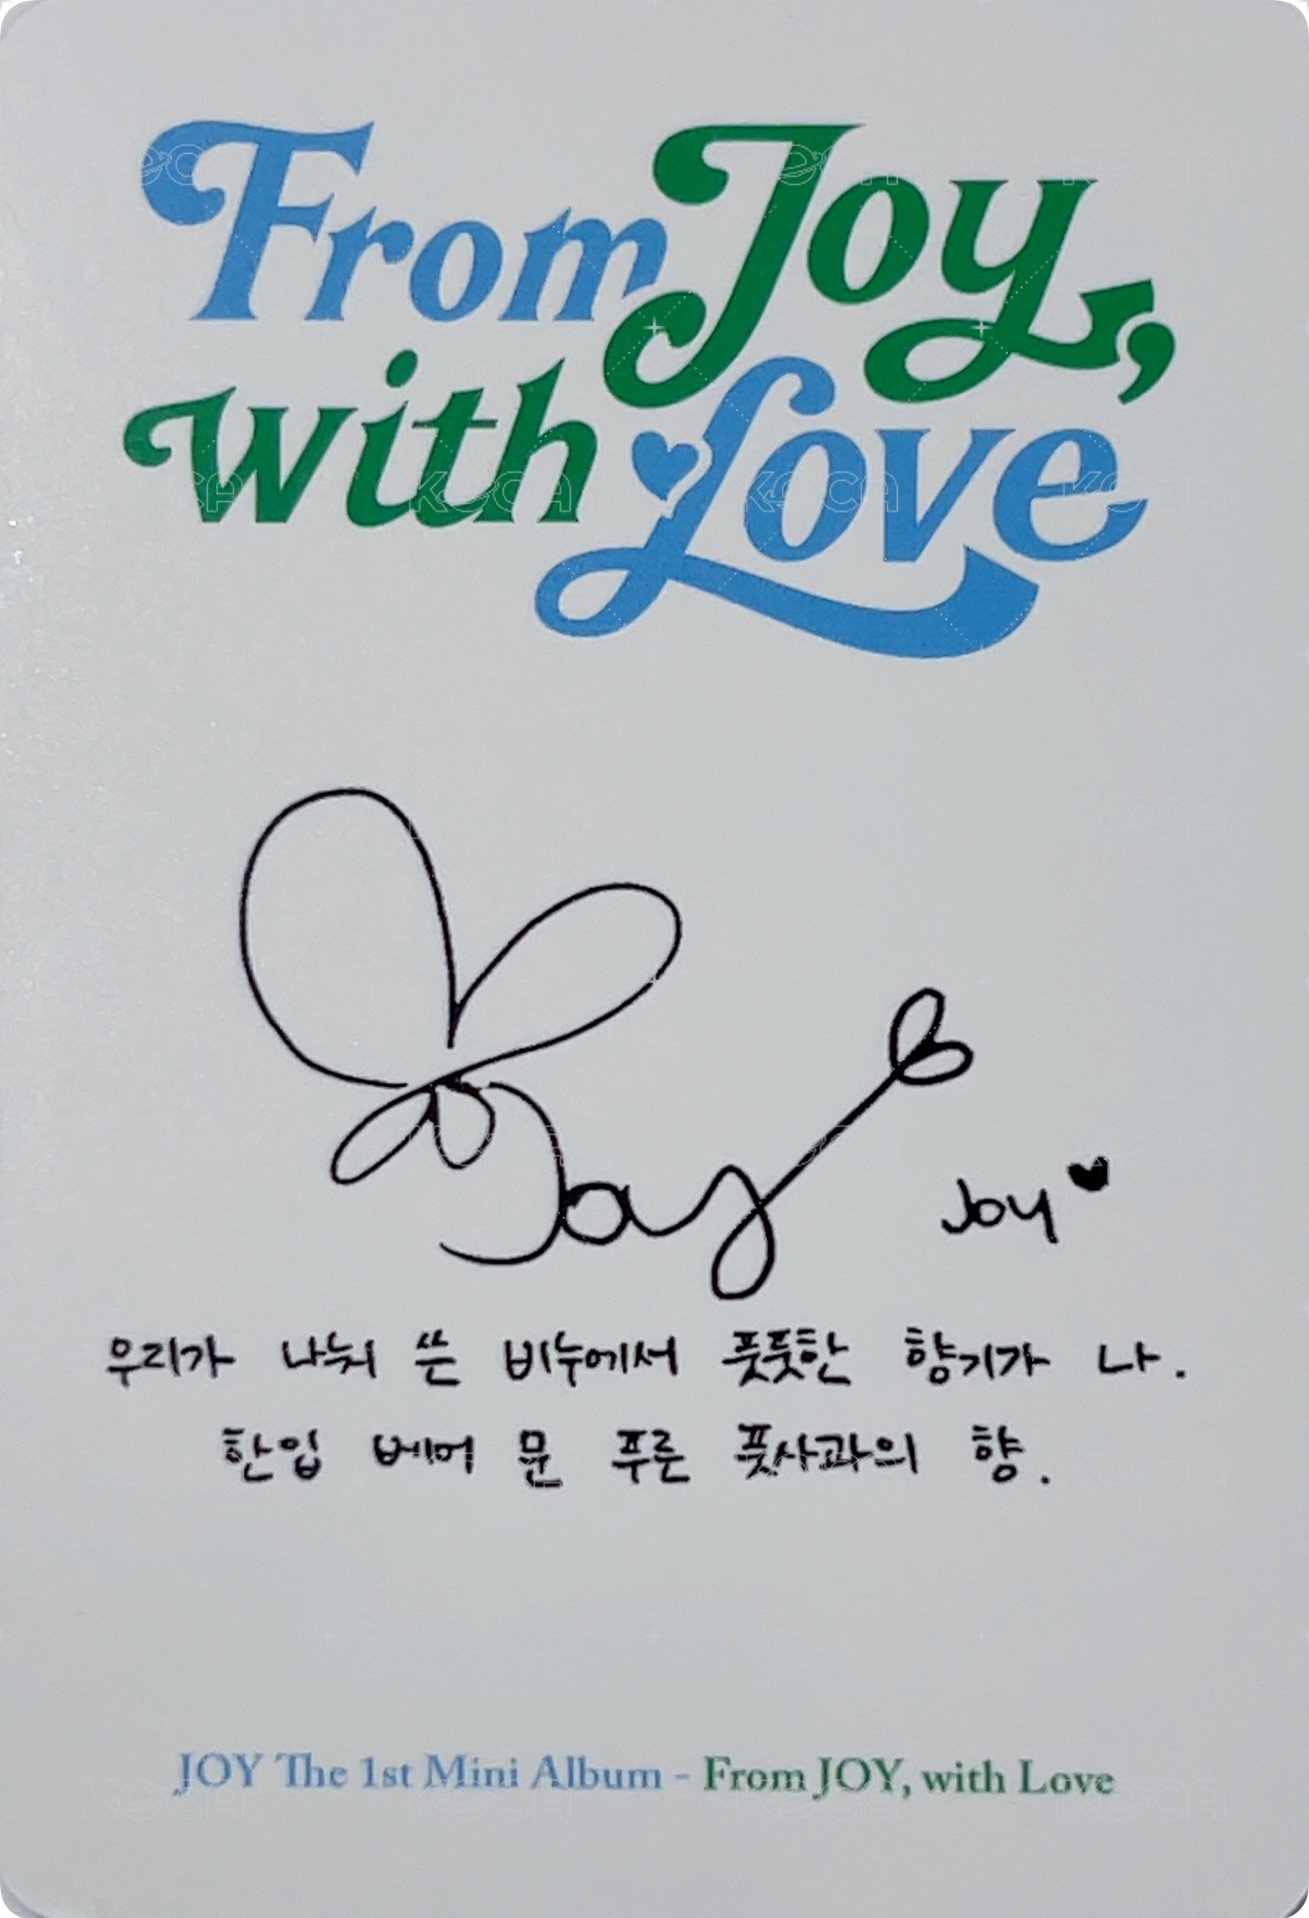 From Joy,
with Love
Joy
Joy
우리가 나눠 쓴 비누에서 풋풋한 향기가 나.
한입 베어 문 푸른 풋사과의 향.
JOY The 1st Mini Album - From JOY, with Love
KOCA KOCA KOCA KOCA